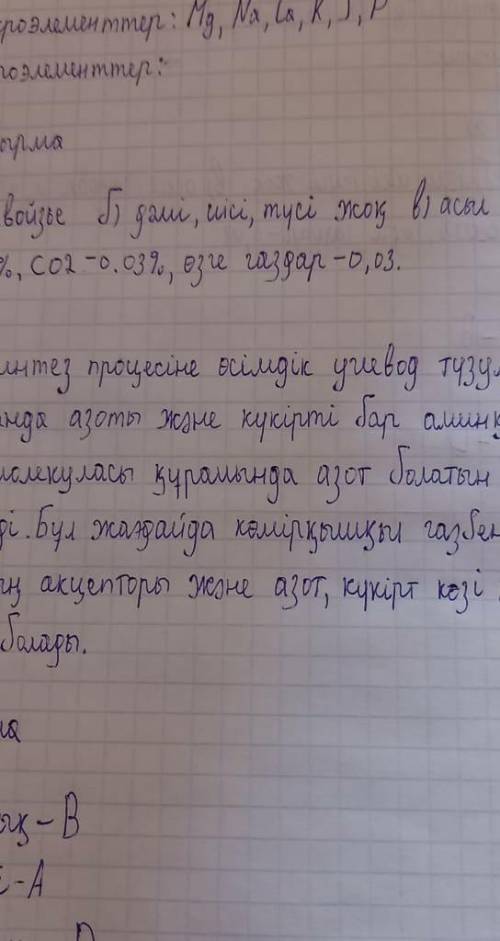 роэлементтер: Mg, Na, Ca, K, S, P
роэлементтер:
ырма
войзье б) дәмі, иісі, түсі жоқ в) асыл
%, CO2 -0.03%, өзге газдар -0,03.
интез процесіне өсімдік углевод түзул
нда азоты және күкірті бар аминқ
молекуласы құрамында азот болатын
ді. Бұл жағдайда көмірқышқыл газбен
ың акцепторы және азот, күкірт көзі
болады.
ма
ық - В
- А